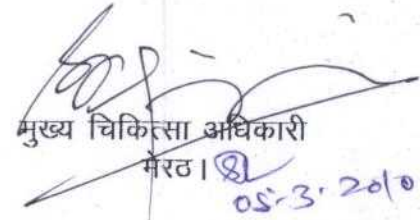 मुख्य चिकित्सा अधिकारी
मेरठ।
05-3-2010